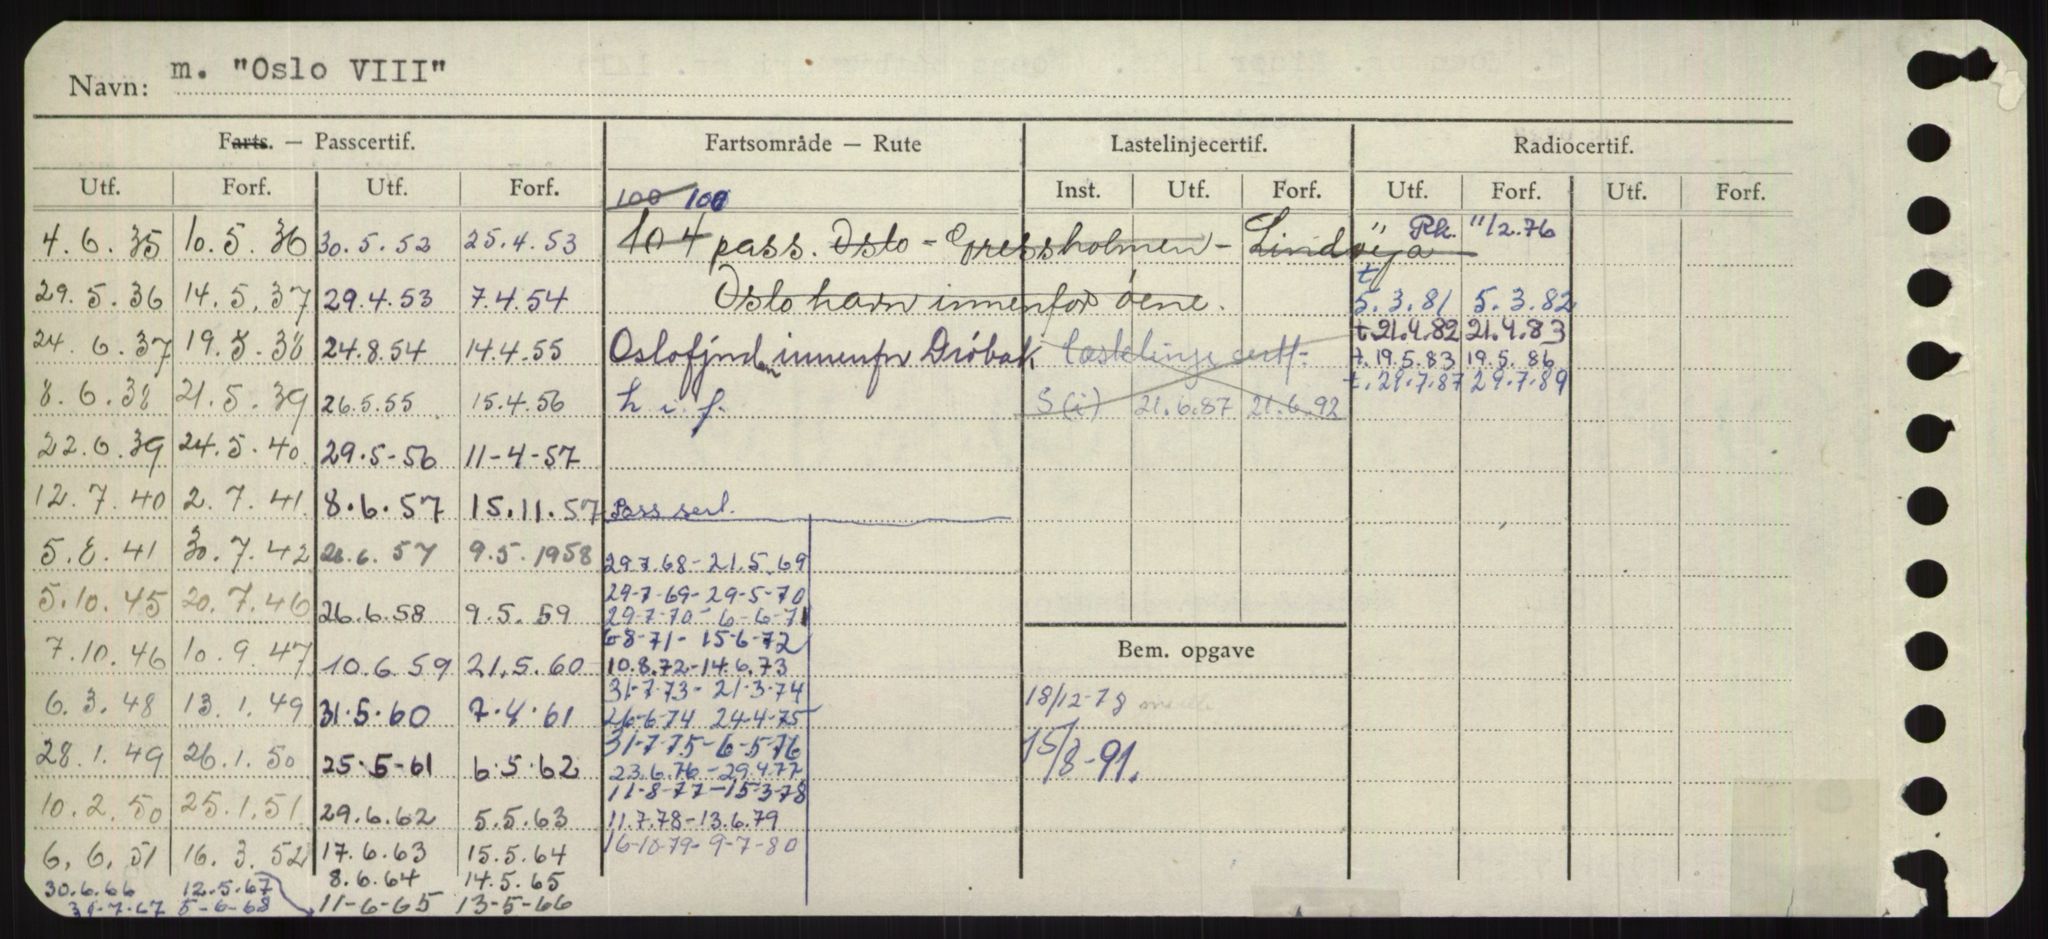 Navn: m. "Oslo VIII"
Farts. — Passcertif. Fartsområde — Rute Lastelinjecertif. Radiocertif.
Utf. Forf. Utf. Forf. Inst. Utf. Forf. Utf. Forf. Utf. Forf.
100 100
4.6.35 10.5.36 30.5.52 25.4.53 104 pass. Oslo - Gressholmen - Lindøya Rk. "/2.76
29.5.36 14.5.37 29.4.53 7.4.54 Oslo havn innenfor øene. t 5.3.81 5.3.82
t.21.4.82 21.4.83
24.6.37 19.5.38 24.8.54 14.4.55 Oslofjorden innenfor Drøbak lastelinje sertf. t.19.5.83 19.5.86
t.29.7.87 29.7.89
8.6.38 21.5.39 26.5.55 15.4.56 h i f. S(i) 21.6.87 21.6.92
22.6.39 24.5.40 29.5-56 11-4-57
12.7.40 2.7.41 8.6.57 15.11.57 Pass serl.
5.8.41 30.7.42 26.6.57 9.5.1958 29.7.68-21.5.69
5.10.45 20.7.46 26.6.58 9.5.59 29-7-69-29-5-70
29-7-70-6-6-71
6-8-71-15-6-72
7.10.46 10.9.47 10.6.59 21.5.60 10.8.72-14.6.73 Bem. opgave
6.3.48 13.1.49 31.5.60 7.4.61 31-7-73-21-3-74 18/12-78
26-6-74 24-4-75
28.1.49 26.1.50 25-5-61 6.5.62 31-7-75-6-5-76 15/8-91.
23.6.76-29.4.77
11-8-77-15-3-78
10.2.50 25.1.51 29.6.62 5.5.63 11.7.78-13.6.79
6.6.51 16.3.52 17.6.63 15.5.64 16-10-79-9-7-80
30.6.66 12.5.67 8.6.64 14.5.65
31-7-67 5-6-68 11-6-65 13-5-66